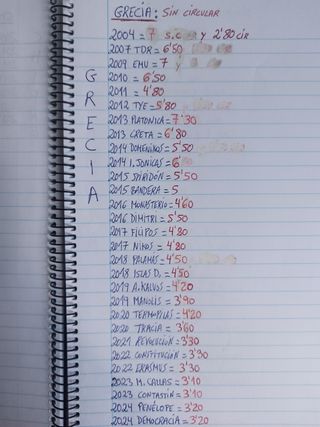 GRECIA: SIN CIRCULAR
2004 = 7 S.C y 2'80 cir
2007 TDR = 6'50
2009 EMU = 7 y
2010 = 6'50
2011 = 4'80
2012 TYE = 5'80
2013 PLATONICA = 7'30
2013 CRETA = 6'80
2014 DOMENIKOS = 5'50
2014 I. JONICAS = 6'
2015 SPIRIDÓN = 5'50
2015 BANDERA = 5
2016 MONASTERIO = 4'60
2016 DIMITRI = 5'50
2017 FILIPOS = 4'80
2017 NIKOS = 4'80
2018 PALAMÁS = 4'50
2018 ISLAS D. = 4'50
2019 A. KALVOS = 4'20
2019 MANOLIS = 3'90
2020 TERMOPILAS = 4'20
2020 TRACIA = 3'60
2021 REVOLUCIÓN = 3'30
2022 CONSTITUCIÓN = 3'30
2022 ERASMUS = 3'30
2023 M. CALLAS = 3'10
2023 CONTASTIN = 3'10
2024 PENÉLOPE = 3'20
2024 DEMOCRACIA = 3'20
G
R
E
C
I
A